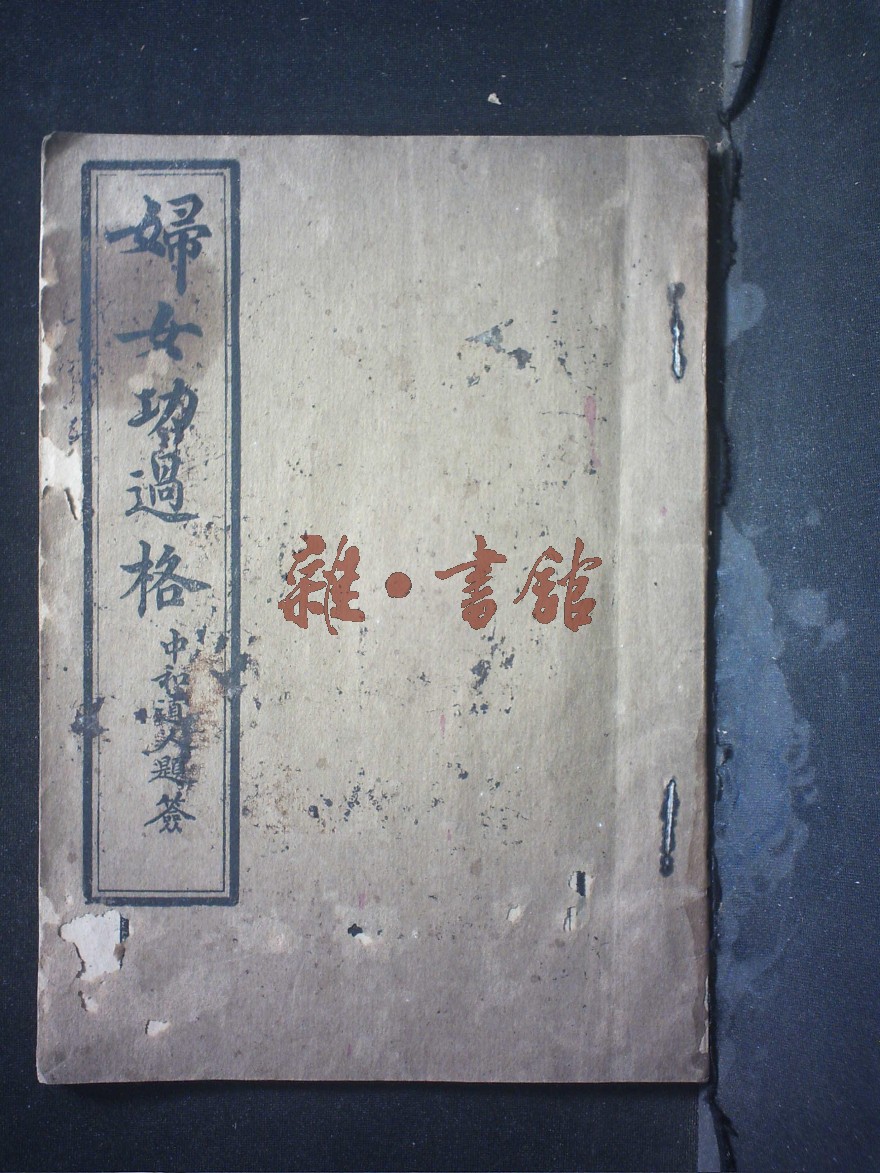 婦女功過格
中和道人題簽
雜·書館